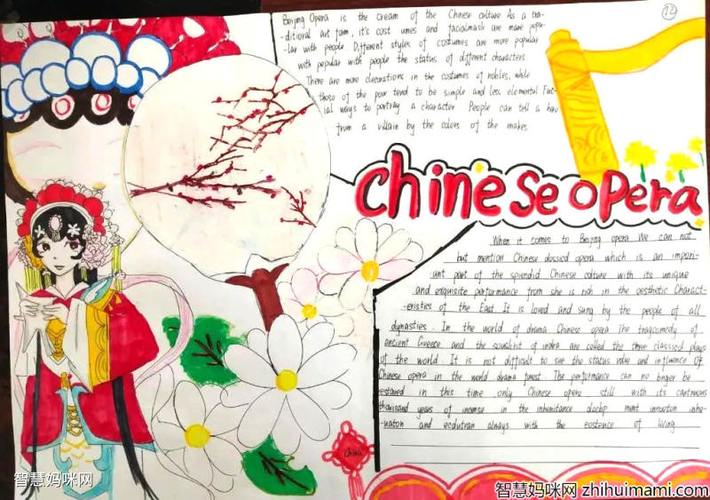 Beijing Opera is the cream of the Chinese culture As a tra-
-ditional art form, it's cost umes and facialmask are more popu-
-lar with people Different styles of costumes are more popular
with popular with people the status of different characters
There are more decorations in the costumes of nobles, while
those of the poor tend to be simple and less elemental Fac-
ial ways to portray a character People can tell a hero
from a villain by the colors of the makes.
12
Chinese opera
When it comes to Beijing opera We can not
but mention Chinese classical opera which is an import-
ant part of the splendid Chinese culture with its unique
and exquisite performance from she is rich in the aesthetic Charact-
-eristics of the East It is loved and sung by the people of all
dynasties. In the world of drama Chinese opera The tragicomedy of
ancient Greece and the sanskrit of india are called the three classical plays
of the world It is not difficult to see the status value and influence Of
Chinese opera in the world drama forest The performance can no longer be
restored in this time only Chinese opera still with its continuous
thousand years of incense in the inheritance
and always with the existence of living
China
智慧妈咪网
智慧妈咪网 zhihuimami.com